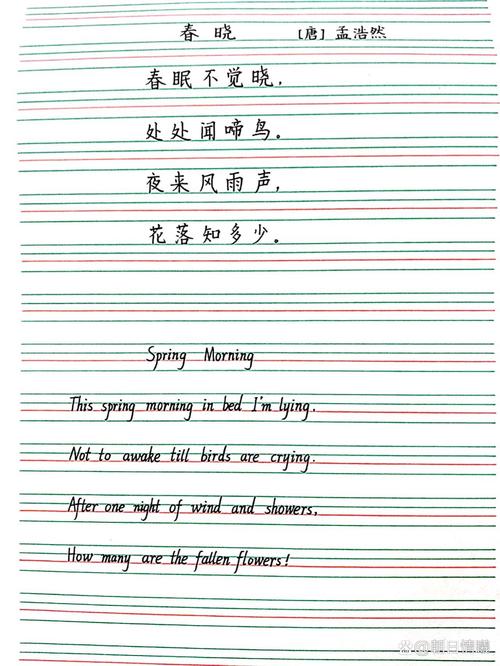 春晓 [唐] 孟浩然
春眠不觉晓，
处处闻啼鸟。
夜来风雨声，
花落知多少。
Spring Morning
This spring morning in bed I'm lying.
Not to awake till birds are crying.
After one night of wind and showers,
How many are the fallen flowers!